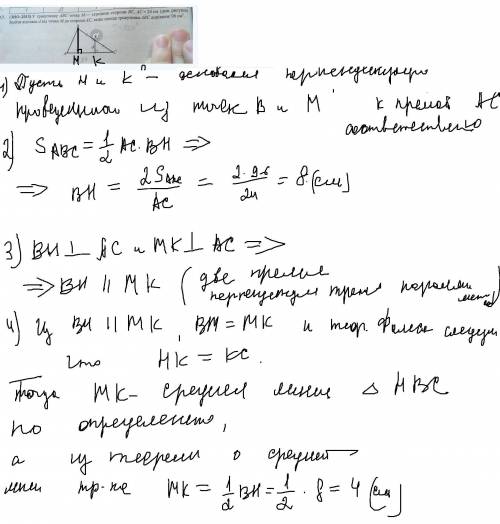 (ИЯО-2018) У треугольнику АВС точка М — середина стороны ВС, АС = 24 см
Найти от точки М до стороны АС, если площадь треугольника АВС равна 96 см²
М К
1) Пусть Н и К - основания перпендикуляров
проведенных из точек В и М к прямой АС
соответственно
2) S ABC = 1/2 AC · BH ⇒
⇒ BH = 2S ABC / AC = 2 · 96 / 24 = 8 (см)
3) BH ⊥ AC и MK ⊥ AC ⇒
⇒ BH ∥ MK (две прямые
перпендикулярные третьей параллельны)
4) Из BH ∥ MK, BM = MK и теор. Фалеса следует
что HK = KC.
Тогда MK - средняя линия △ HBC
по определению,
а из теоремы о средней
линии тр-ка MK = 1/2 BH = 1/2 · 8 = 4 (см)